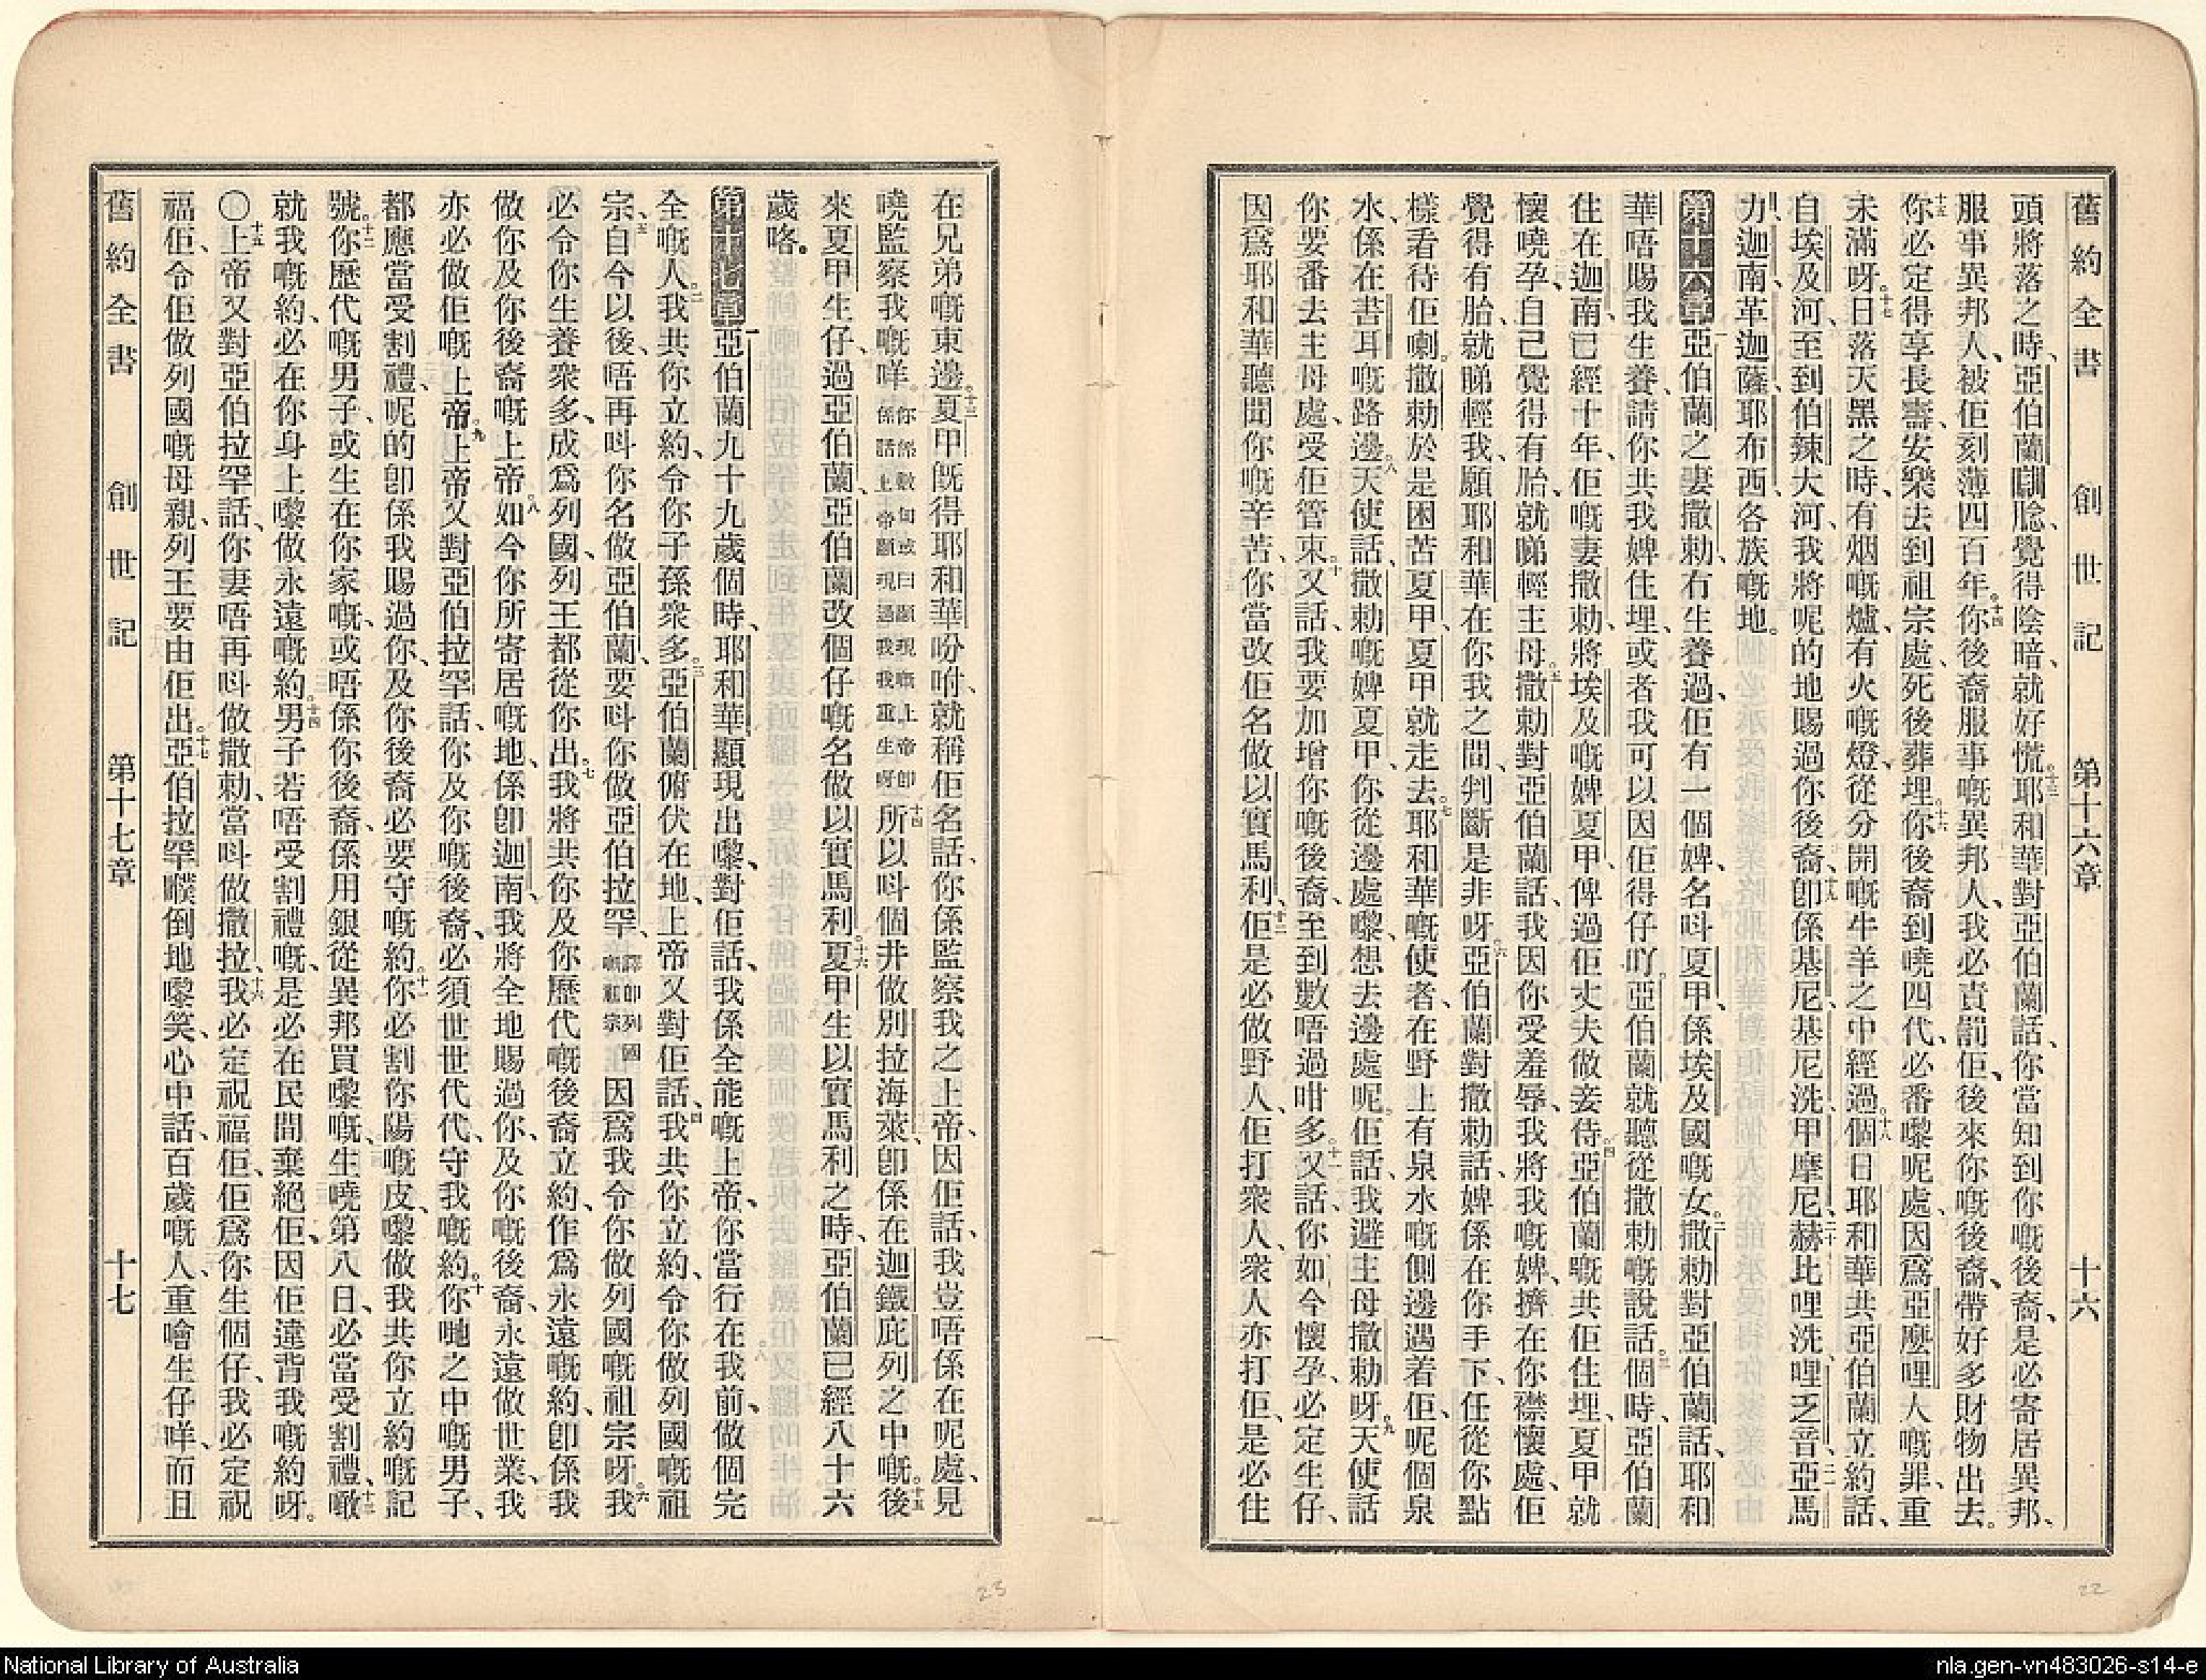 舊約全書 創世記 第十六章 十六
頭將落之時、亞伯蘭瞓腍、覺得陰暗、就好慌。十三耶和華對亞伯蘭話、你當知到你嘅後裔、是必寄居異邦、
服事異邦人、被佢刻薄四百年。十四你後裔服事嘅異邦人、我必責罰佢、後來你嘅後裔、帶好多財物出去。
十五你必定得享長壽、安樂去到祖宗處、死後葬埋。十六你後裔到嘵四代、必番嚟呢處、因爲亞麼哩人嘅罪、重
未滿呀。十七日落天黑之時、有烟嘅爐、有火嘅燈、從分開嘅牛羊之中經過。十八個日耶和華共亞伯蘭立約話、
自埃及河、至到伯辣大河、我將呢的地賜過你後裔、十九卽係基尼、基尼洗、甲摩尼、二十赫、比哩洗、哩乏音、二一亞馬
力、迦南、革迦薩、耶布西、各族嘅地。
第十六章 一亞伯蘭之妻撒勅、冇生養過、佢有一個婢、名呌夏甲、係埃及國嘅女。二撒勅對亞伯蘭話、耶和
華唔賜我生養、請你共我婢住埋、或者我可以因佢得仔吖。亞伯蘭就聽從撒勅嘅說話。三個時、亞伯蘭
住在迦南、已經十年、佢嘅妻撒勅、將埃及嘅婢夏甲、俾過佢丈夫做妾侍。四亞伯蘭嘅共佢住埋、夏甲就
懷嘵孕、自己覺得有胎、就睇輕主母。五撒勅對亞伯蘭話、我因你受羞辱、我將我嘅婢、擠在你襟懷處、佢
覺得有胎、就睇輕我、願耶和華在你我之間、判斷是非呀。六亞伯蘭對撒勅話、婢係在你手下、任從你點
樣看待佢喇。撒勅於是困苦夏甲、夏甲就走去。七耶和華嘅使者、在野上有泉水嘅側邊遇着佢、呢個泉
水、係在書耳嘅路邊。八天使話、撒勅嘅婢夏甲、你從邊處嚟、想去邊處呢。佢話、我避主母撒勅呀。九天使話
你要番去主母處、受佢管束。十又話、我要加增你嘅後裔、至到數唔過咁多。十一又話、你如今懷孕、必定生仔、
因爲耶和華聽聞你嘅辛苦、你當改佢名做以實馬利、十二佢是必做野人、佢打衆人、衆人亦打佢、是必住
在兄弟嘅東邊。十三夏甲旣得耶和華吩咐、就稱佢名話、你係監察我之上帝、因佢話、我豈唔係在呢處、見
嘵監察我嘅咩。你係數句或曰顯現嘅上帝卽係話上帝顯現過我我重生呀十四所以呌個井做別拉海萊、卽係在迦鐵庇列之中嘅。十五後
來夏甲生仔、過亞伯蘭、亞伯蘭改個仔嘅名做以實馬利。十六夏甲生以實馬利之時、亞伯蘭已經八十六
歲咯。
第十七章 一亞伯蘭九十九歲個時、耶和華顯現出嚟、對佢話、我係全能嘅上帝、你當行在我前、做個完
全嘅人。二我共你立約、令你子孫衆多。三亞伯蘭俯伏在地、上帝又對佢話、四我共你立約、令你做列國嘅祖
宗、五自今以後、唔再呌你名做亞伯蘭、要呌你做亞伯拉罕、譯卽列國嘅祖宗因爲我令你做列國嘅祖宗呀。六我
必令你生養衆多、成爲列國、列王都從你出。七我將共你及你歷代嘅後裔立約、作爲永遠嘅約、卽係我
做你及你後裔嘅上帝。八如今你所寄居嘅地、係卽迦南、我將全地賜過你、及你嘅後裔、永遠做世業、我
亦必做佢嘅上帝。九上帝又對亞伯拉罕話、你及你嘅後裔、必須世世代代、守我嘅約。十你哋之中嘅男子、
都應當受割禮、呢的卽係我賜過你、及你後裔必要守嘅約。十一你必割你陽嘅皮、嚟做我共你立約嘅記
號。十二你歷代嘅男子、或生在你家嘅、或唔係你後裔、係用銀從異邦買嚟嘅、生嘵第八日、必當受割禮、十三噉
就我嘅約、必在你身上嚟做永遠嘅約。十四男子若唔受割禮嘅、是必在民間棄絕佢、因佢違背我嘅約呀。
〇十五上帝又對亞伯拉罕話、你妻唔再呌做撒勅、當呌做撒拉、十六我必定祝福佢、佢爲你生個仔、我必定祝
福佢、令佢做列國嘅母親、列王要由佢出。十七亞伯拉罕瞨倒地嚟笑、心中話、百歲嘅人、重噲生仔咩、而且
舊約全書 創世記 第十七章 十七
22
23
National Library of Australia
nla.gen-vn483026-s14-e